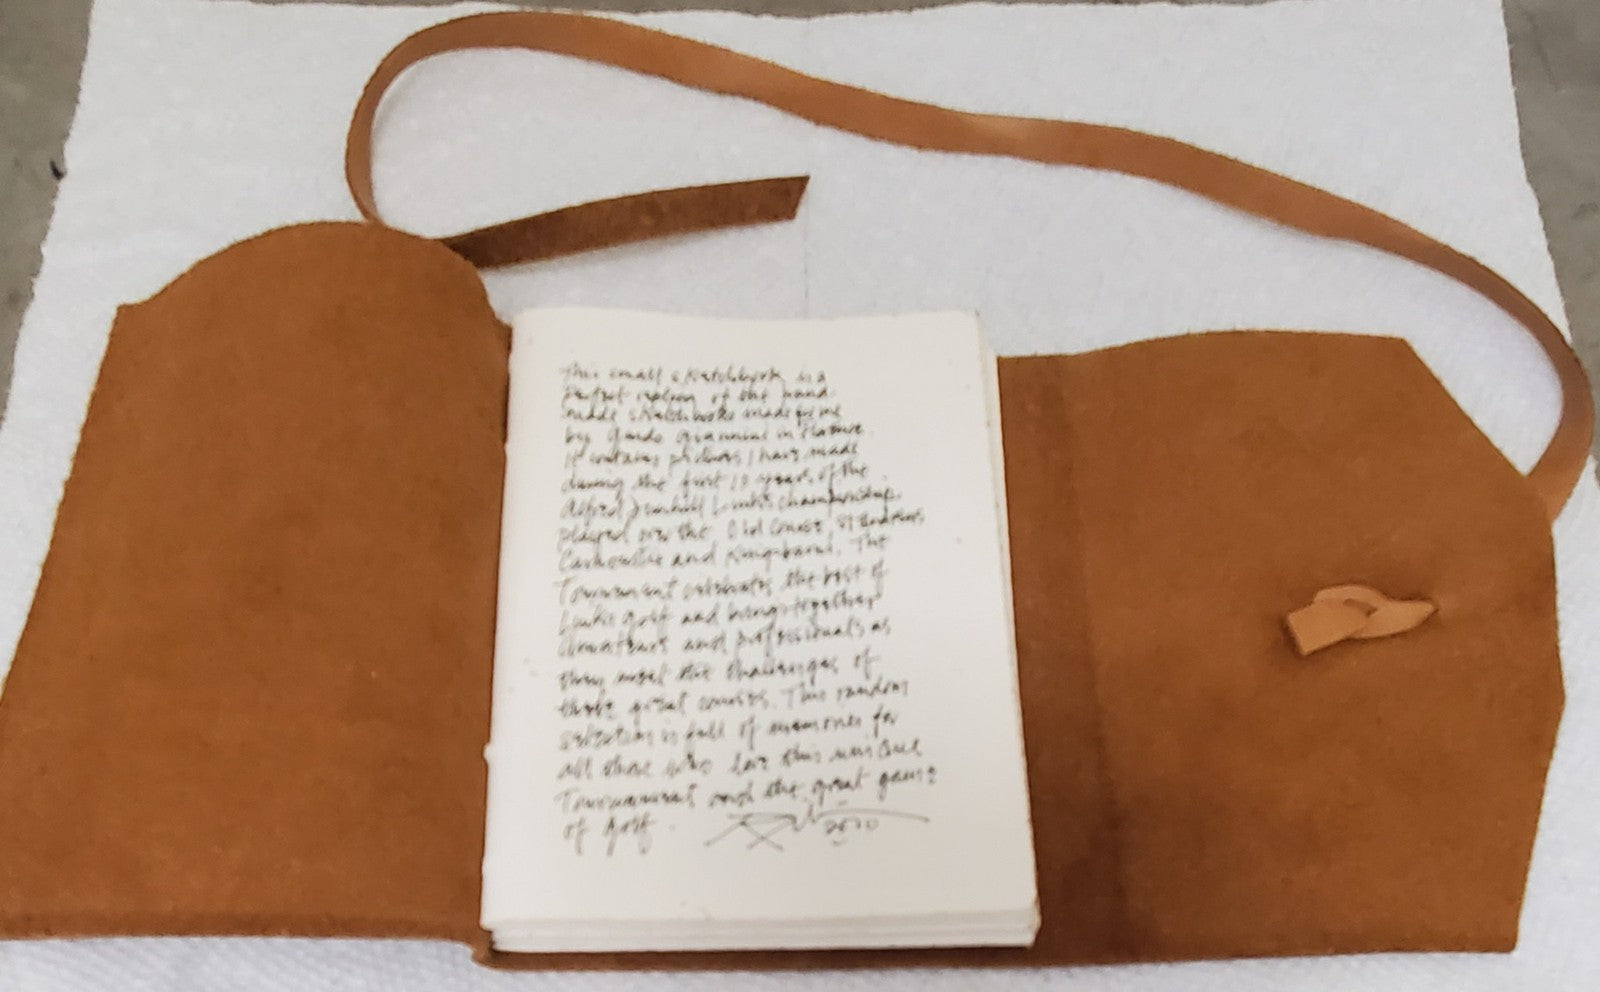 This small sketchbook is a
perfect replica of the hand
made sketchbooks made for me
by Giulio Giannini in Florence.
It contains pictures I have made
during the first 10 years of the
Alfred Dunhill Links championship.
played over the Old Course, St Andrews,
Carnoustie and Kingsbarns. The
Tournament celebrates the best of
Links golf and brings together
Amateurs and professionals as
they meet the challenges of
these great courses. This random
selection is full of memories for
all those who love this unique
Tournament and the great game
of golf.
2010